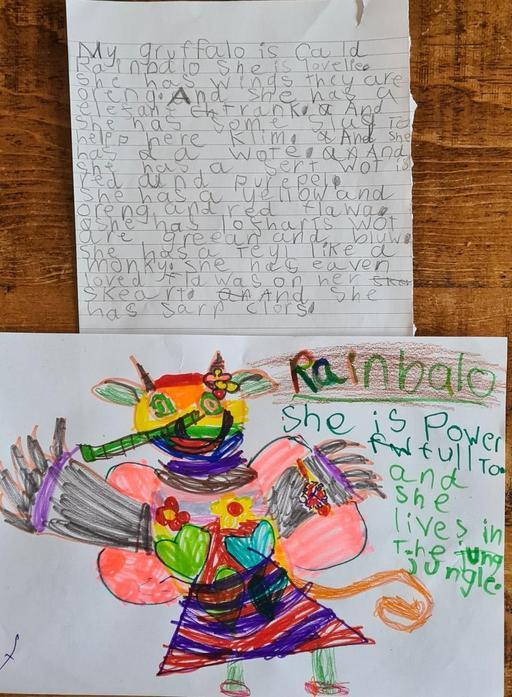 My gruffalo is Cald
Rainbalo She is lovelie.
She has wings they are
oreng. And she has a
trank. And
She has seme slug To
help here Klim. And she
has a wote. And
She has a sert wot is
red and purepel.
She has a yellow and
oreng and red flawa.
She has loshans wot
are greean and bluw.
She has a teyl like a
monky. she has eaven
loved flawas on her
skeart. And She
has sarp clors.
Rainbalo
She is Power
full To.
and
she
lives in
The jung
jungle.